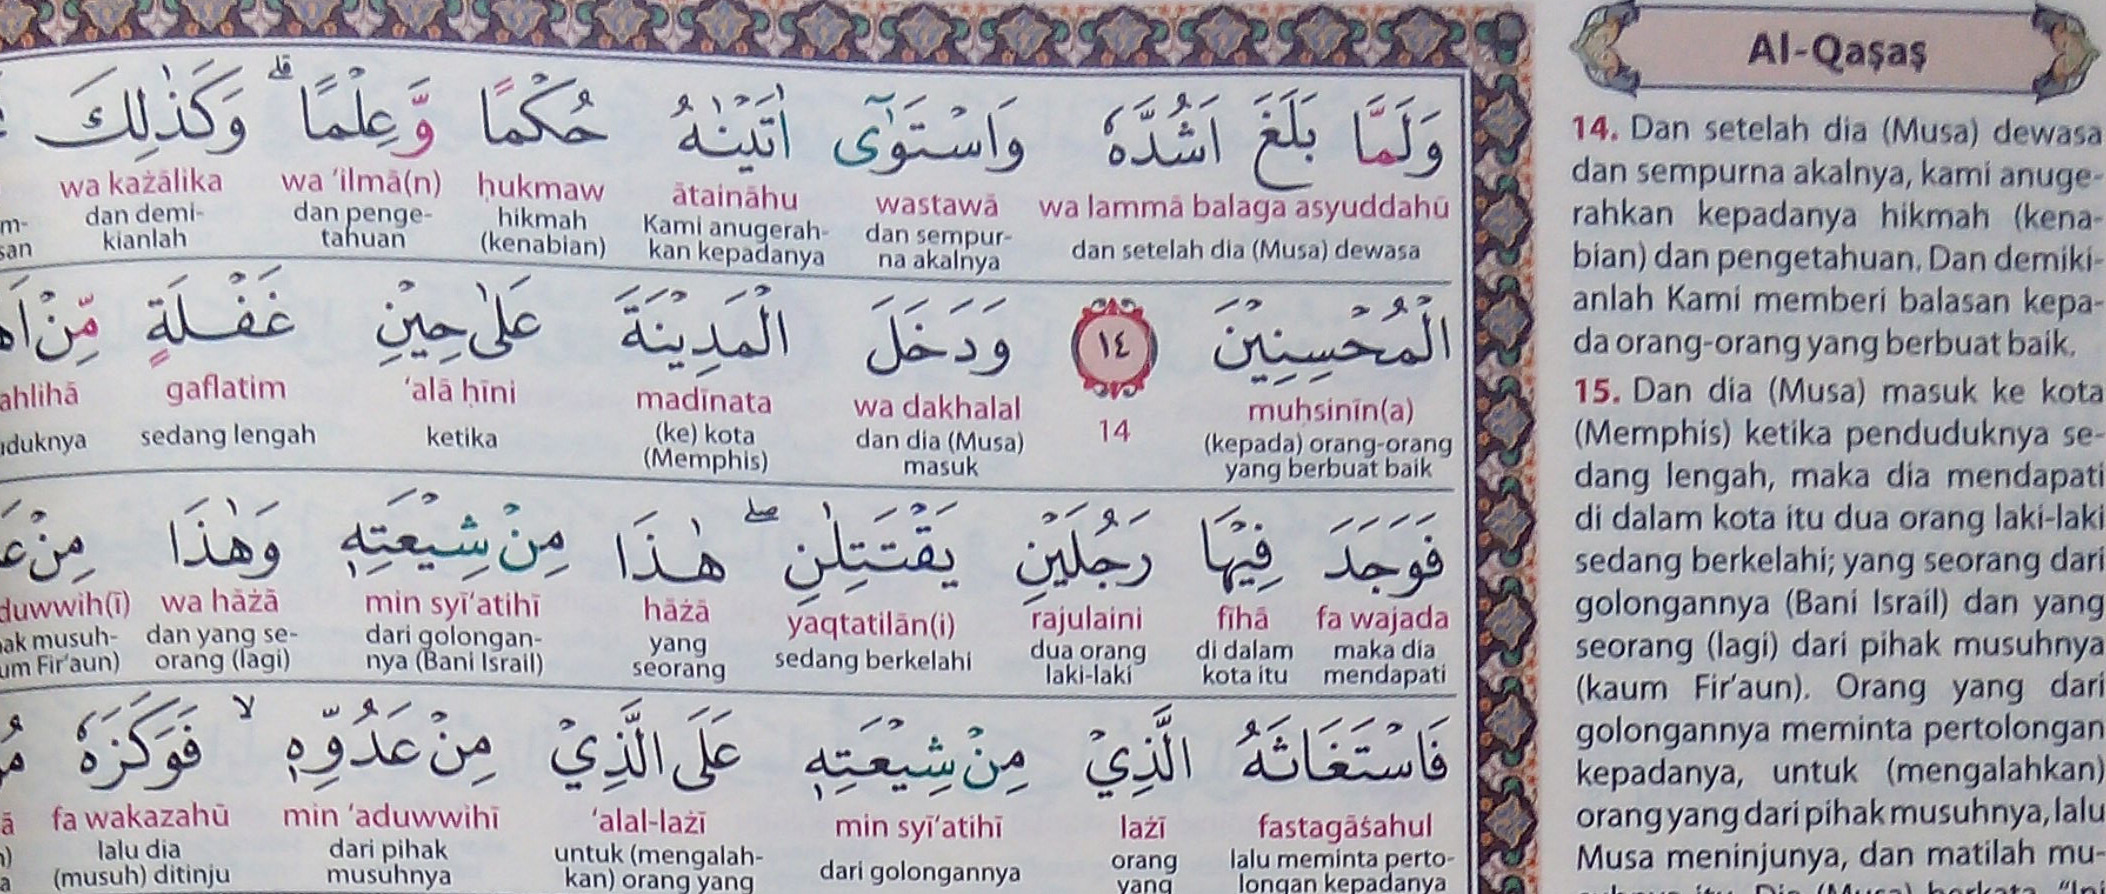 Al-Qaṣaṣ
وَلَمَّا بَلَغَ اَشُدَّهٗ وَاسْتَوٰٓى اٰتَيْنٰهُ حُكْمًا وَّعِلْمًاۗ وَكَذٰلِكَ
wa lammā balaga asyuddahū wastawā ātaināhu ḥukmaw wa ‘ilmā(n) wa każālika
dan setelah dia (Musa) dewasa dan sempur- Kami anugerah- hikmah dan penge- dan demi-
na akalnya kan kepadanya (kenabian) tahuan kianlah
الْمُحْسِنِيْنَ ١٤ وَدَخَلَ الْمَدِيْنَةَ عَلٰى حِيْنِ غَفْلَةٍ مِّنْ
muḥsinīn(a) 14 wa dakhalal madīnata ‘alā ḥīni gaflatim ahlihā
(kepada) orang-orang dan dia (Musa) (ke) kota ketika sedang lengah
yang berbuat baik masuk (Memphis)
فَوَجَدَ فِيْهَا رَجُلَيْنِ يَقْتَتِلٰنِۖ هٰذَا مِنْ شِيْعَتِهٖ وَهٰذَا مِنْ
fa wajada fīhā rajulaini yaqtatilān(i) hāżā min syī‘atihī wa hāżā
maka dia di dalam dua orang sedang berkelahi yang dari golongan- dan yang se-
mendapati kota itu laki-laki seorang nya (Bani Israil) orang (lagi)
فَاسْتَغَاثَهُ الَّذِيْ مِنْ شِيْعَتِهٖ عَلَى الَّذِيْ مِنْ عَدُوِّهٖۙ فَوَكَزَهٗ
fastagāṡahul lażī min syī‘atihī ‘alal-lażī min ‘aduwwihī fa wakazahū
lalu meminta perto- orang dari golongannya untuk (mengalah- dari pihak lalu dia
longan kepadanya yang kan) orang yang musuhnya (musuh) ditinju
14. Dan setelah dia (Musa) dewasa
dan sempurna akalnya, kami anuge-
rahkan kepadanya hikmah (kena-
bian) dan pengetahuan. Dan demiki-
anlah Kami memberi balasan kepa-
da orang-orang yang berbuat baik.
15. Dan dia (Musa) masuk ke kota
(Memphis) ketika penduduknya se-
dang lengah, maka dia mendapati
di dalam kota itu dua orang laki-laki
sedang berkelahi; yang seorang dari
golongannya (Bani Israil) dan yang
seorang (lagi) dari pihak musuhnya
(kaum Fir’aun). Orang yang dari
golongannya meminta pertolongan
kepadanya, untuk (mengalahkan)
orang yang dari pihak musuhnya, lalu
Musa meninjunya, dan matilah mu-